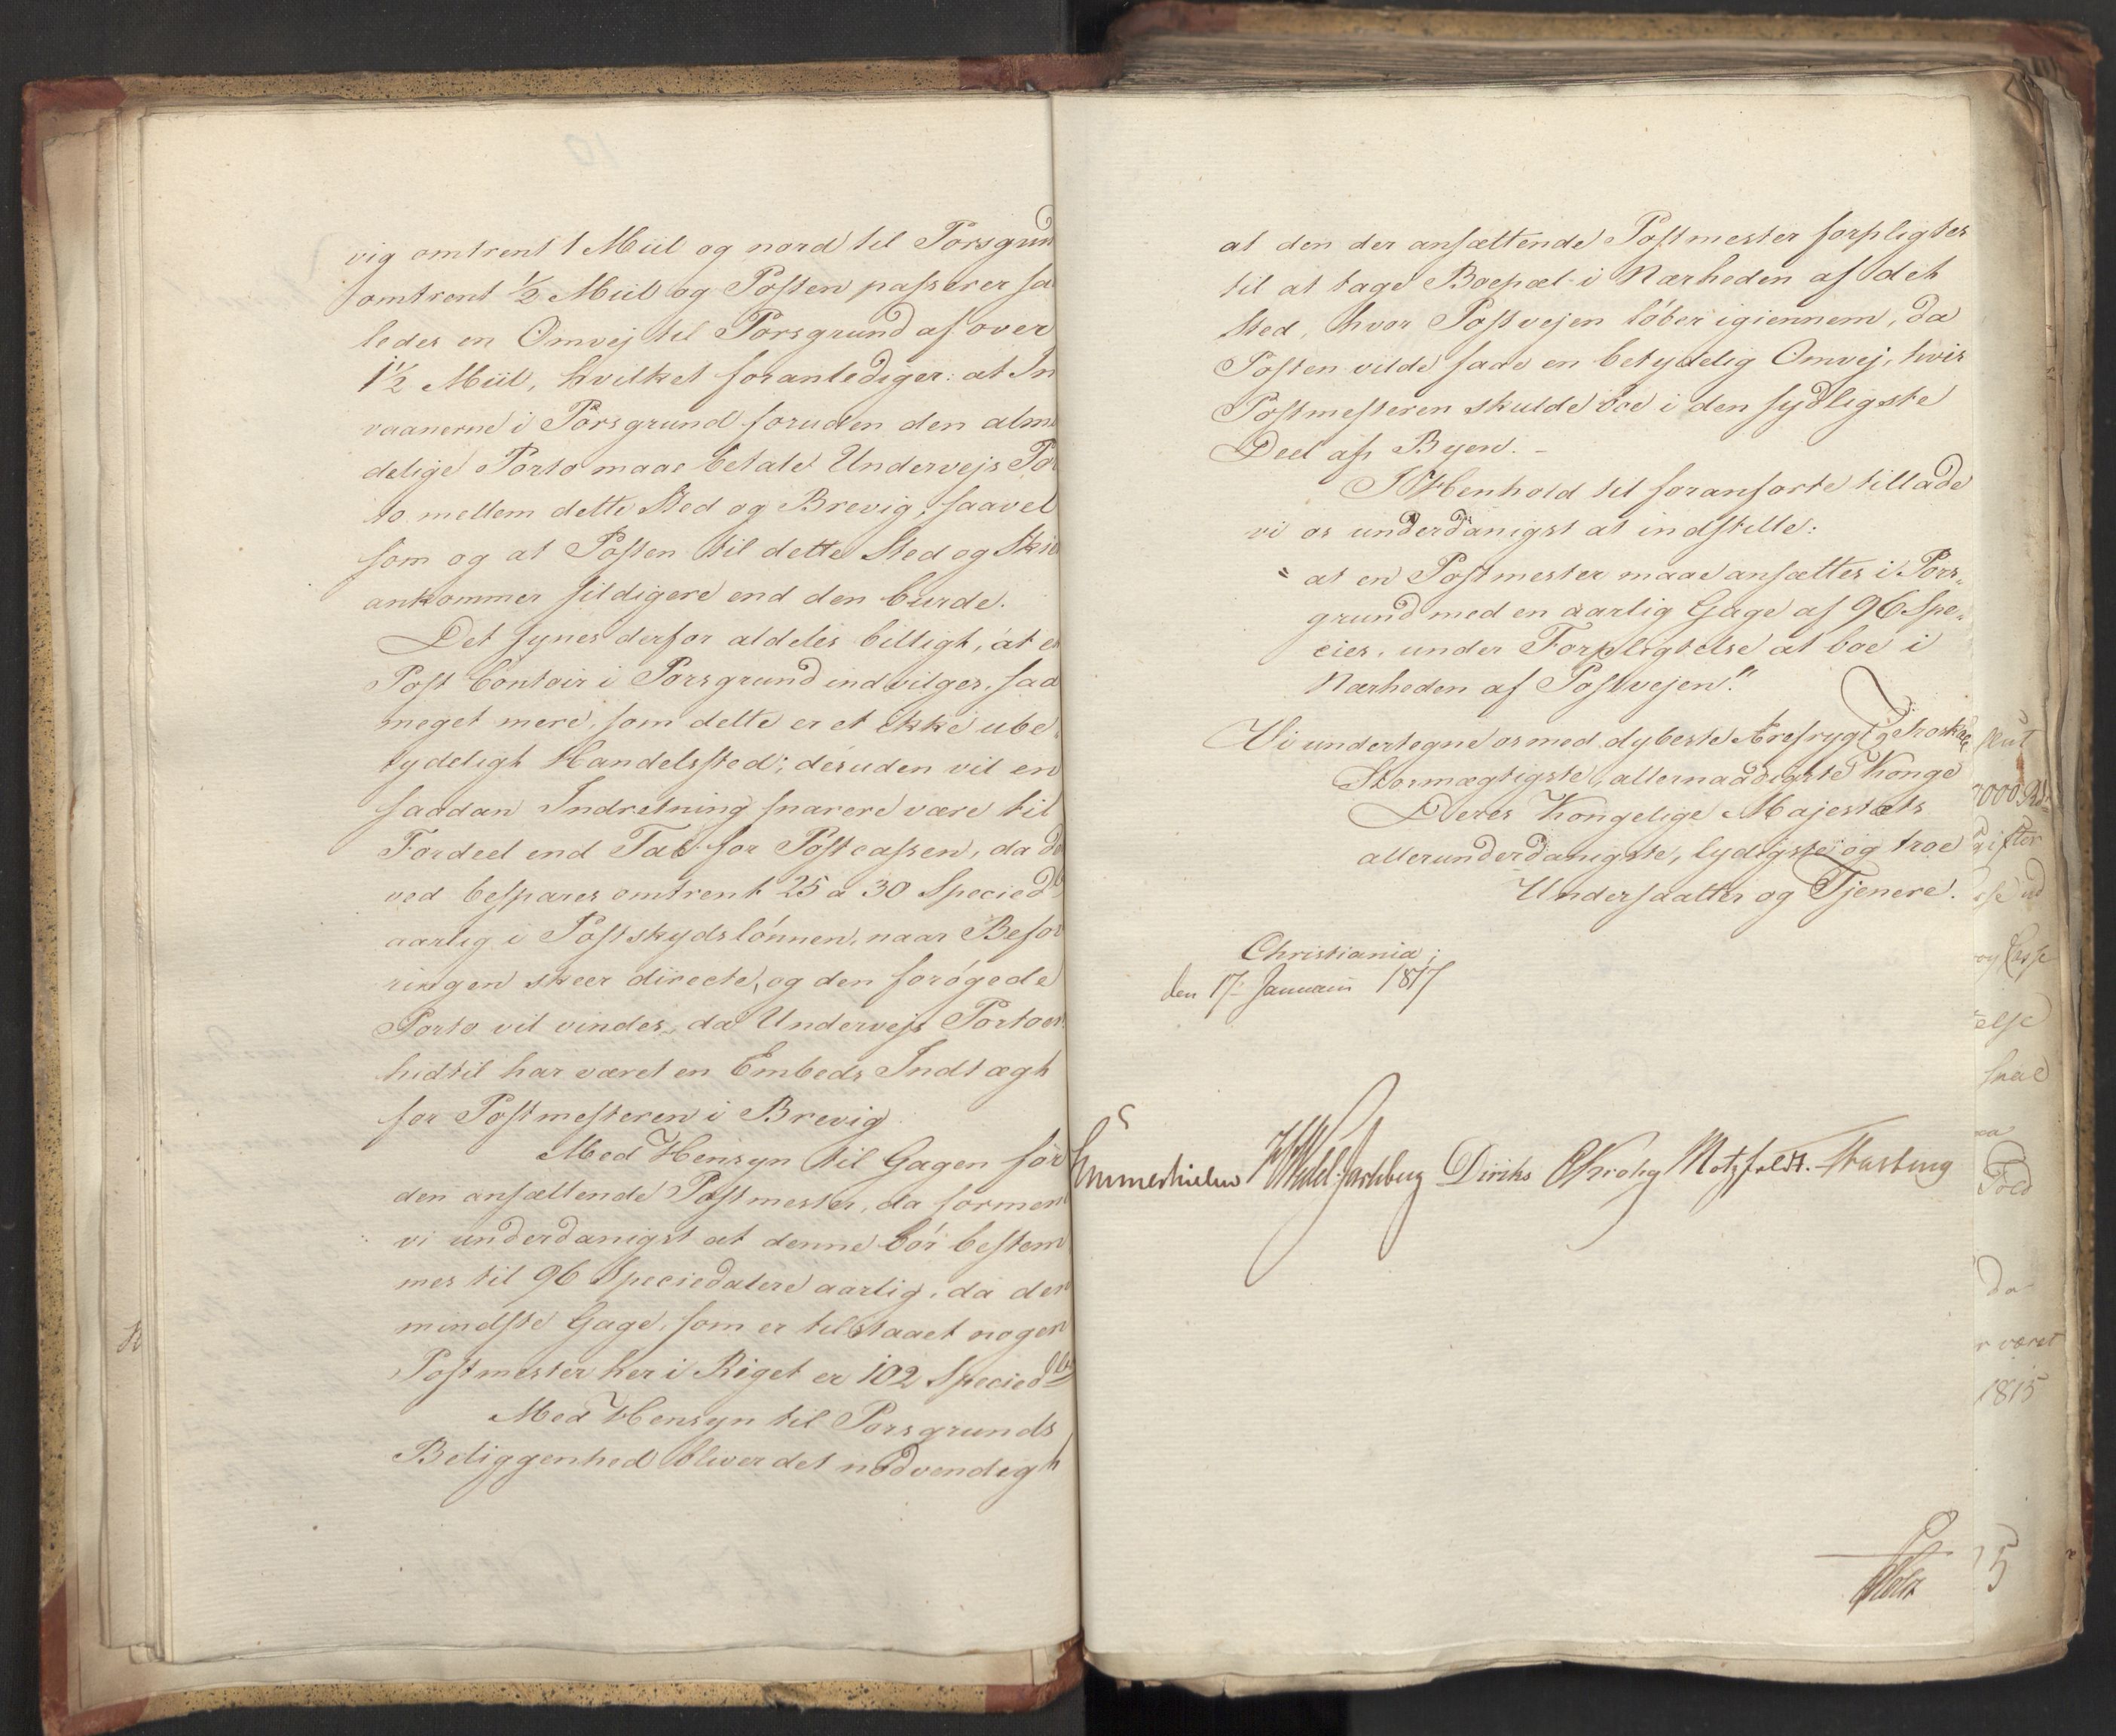 vig omtrent 1 Miil og nord til Porsgrund
omtrent ½ Miil og Posten passerer saa
ledes en Omvej til Porsgrund af over
1½ Miil, hvilket foranlediger: at In
vaanerne i Porsgrund foruden den almi
delige Porto maae betale Undervejs Por
to mellem dette Sted og Brevig, saavel
som og at Posten til dette Sted og Skie
ankommer sildigere end den burde.
Det synes derfor aldeles billigt, at et
Post Contoir i Porsgrund indvilges, saa
meget mere, som dette er et ikke ube
tydeligt Handelssted; desuden vil en
saadan Indretning snarere være til
Fordeel end Tab for Postcassen, da der
ved bespares omtrent 25 a 30 Speciedlr
aarlig i Postskydslønnen, naar Befor
ringen skeer directe, og den forøgede
Porto vil vindes, da Undervejs Portoen
hidtil har været en Embeds Indtægt
for Postmesteren i Brevig.
Med Hensyn til Gagen for
den ansættende Postmester, da formen
vi underdanigst at denne bør bestem
mes til 96 Speciedalere aarlig, da den
mindste Gage, som er tilstaaet nogen
Postmester her i Riget er 102 Speciedlr
Med Hensyn til Porsgrunds
Beliggenhed bliver det nødvendigt
at den der ansættende Postmester forpligtes
til at tage Boepæl i Nærheden af det
Sted, hvor Postvejen løber igiennem, da
Posten vilde faae en betydelig Omvej, hvis
Postmesteren skulde boe i den sydligste
Deel af Byen. -
I Henhold til foranførte tillade
vi os underdanigst at indstille:
" at en Postmester maae ansættes i Pors-
grund med en aarlig Gage af 96 Spe-
cies, under Forpligtelse at boe i
Nærheden af Postvejen."
Vi undertegne os med dybeste Ærefrygt og Troskab
Stormægtigste, allernaadigste Konge
Deres Kongelige Majestæts
allerunderdanigste, lydigste og troe
Undersaatter og Tjenere.
Christiania,
den 17 Januarii 1817
Sommerhielm HWedel-Jarlsberg Diriks CKrohg Motzfeldt. Fasting
Holst
1815